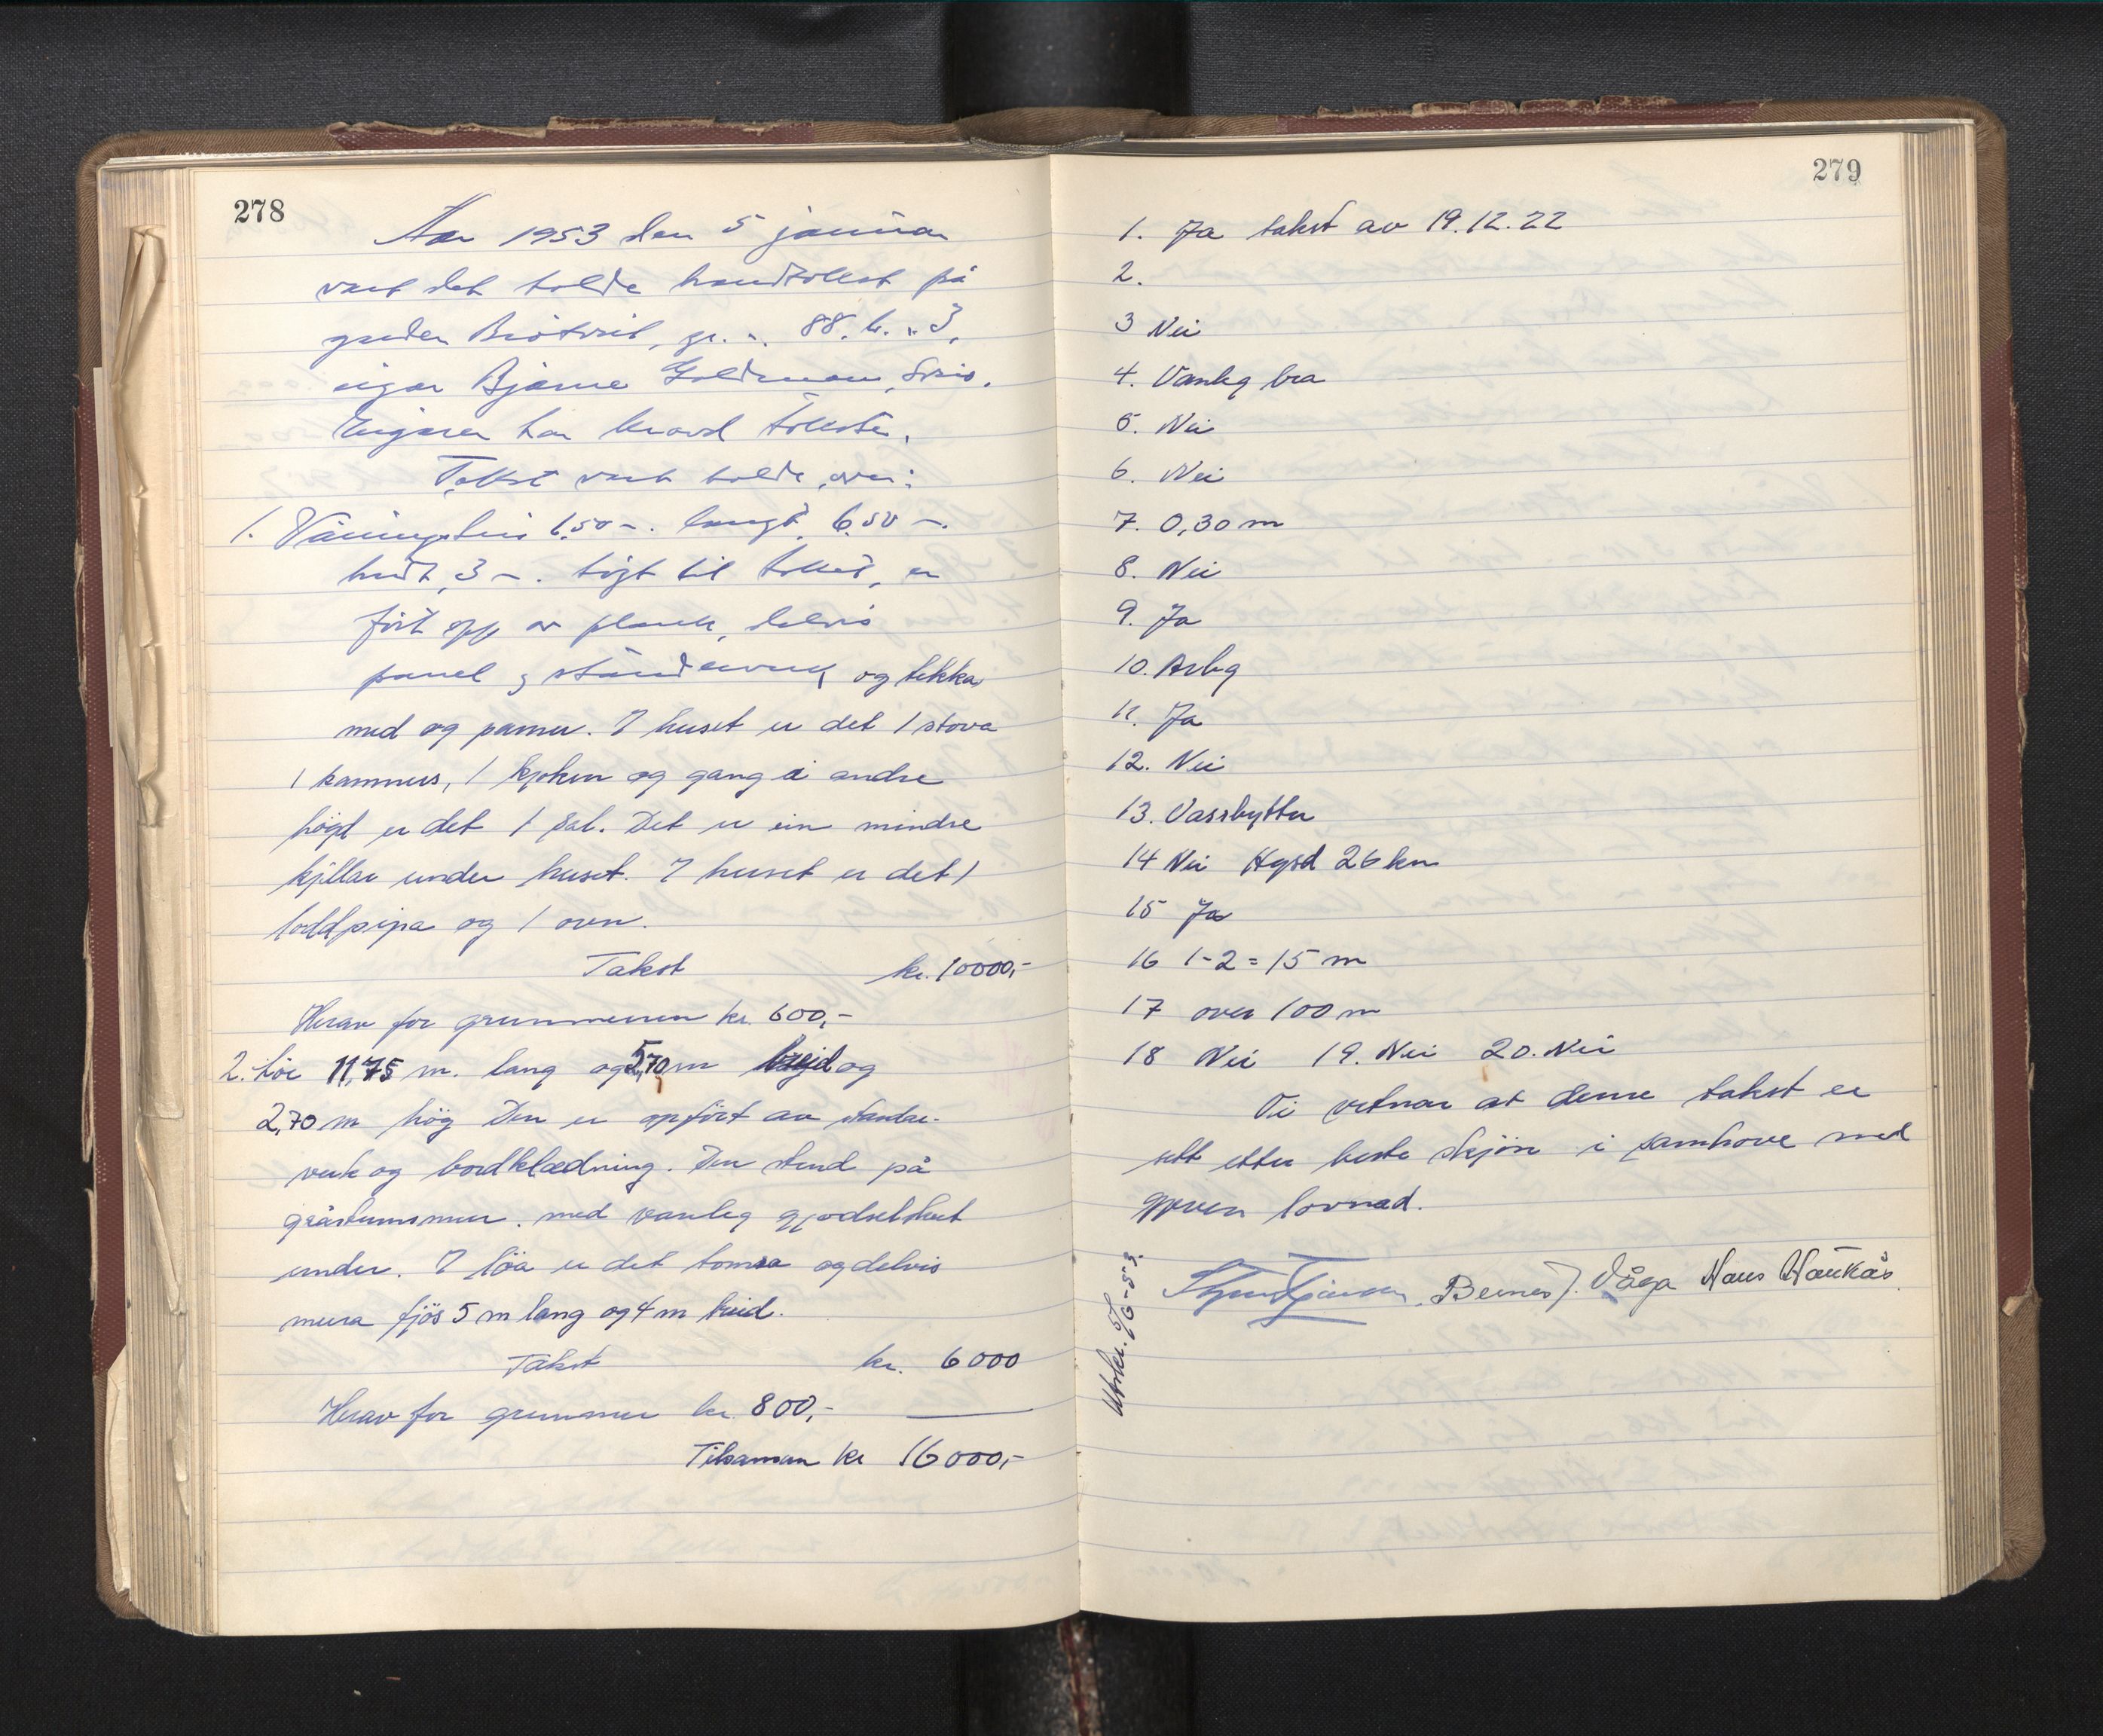 278
Aar 1953 den 5 januar
vart det halde branntakst på
garden gr. n. 88, b. n. 3,
eigar Bjarne
Eigaren har kravd taksten.
Takst vart halde over:
1. Våningshus 6,50 m. langt, 6,50 m.
breidt, 3 m. högt til taket, er
fört opp av plank, delvis
panel og standerverk og tekka
med og panner. I huset er det 1 stova
1 kammers, 1 kjoken og gang i andre
högd er det 1 sal. Det er ein mindre
kjellar under huset. I huset er det 1
loddpipa og 1 oven.
Takst kr. 10000,-
Herav for grunnmuren kr. 600,-
2. Löe 11,75 m. lang og 5,70 m breid og
2,70 m hög Den er opfört av stender-
verk og bordklædning. Den stend på
gråsteinsmur. med vanleg gjødselskut
under. I löa er det tomra og delvis
mura fjös 5 m lang og 4 m breid.
Takst kr. 6000
Herav for grunnmur kr. 800,-
Tilsaman kr 16000,-
279
1. Ja takst av 19.12.22
2.
3 Nei
4. Vanleg bra
5. Nei
6. Nei
7. 0,30 m
8. Nei
9. Ja
10. Årleg
11. Ja
12. Nei
13. Vassbytter
14 Nei Hgsd 26 km
15 Ja
16 1-2 = 15 m
17 over 100 m
18 Nei 19. Nei 20. Nei
Vi vitnar at denne takst er
sett etter beste skjön i samhove med
gjeven lovnad.
J. Våga Hans Haukås
Utskr. 5/6-53.